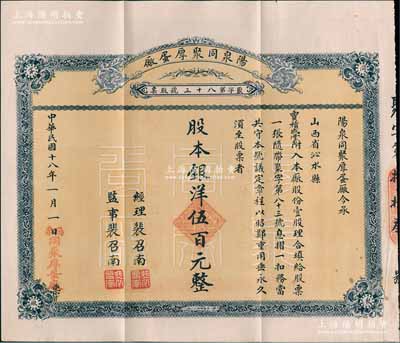 上海陽明拍賣
陽泉同聚厚蛋廠
聚字第八十三號股票
陽泉同聚厚蛋廠今承
山西省沁水縣
寶積堂附入本廠股份壹股理合填給股票
一張隨聯聚字第八十三號息摺一扣務當
共守本號議定章程以昭鄭重用垂永久
須至股票者
股本銀洋伍百元整
經理裴召南
監事裴召南
中華民國十八年一月一日